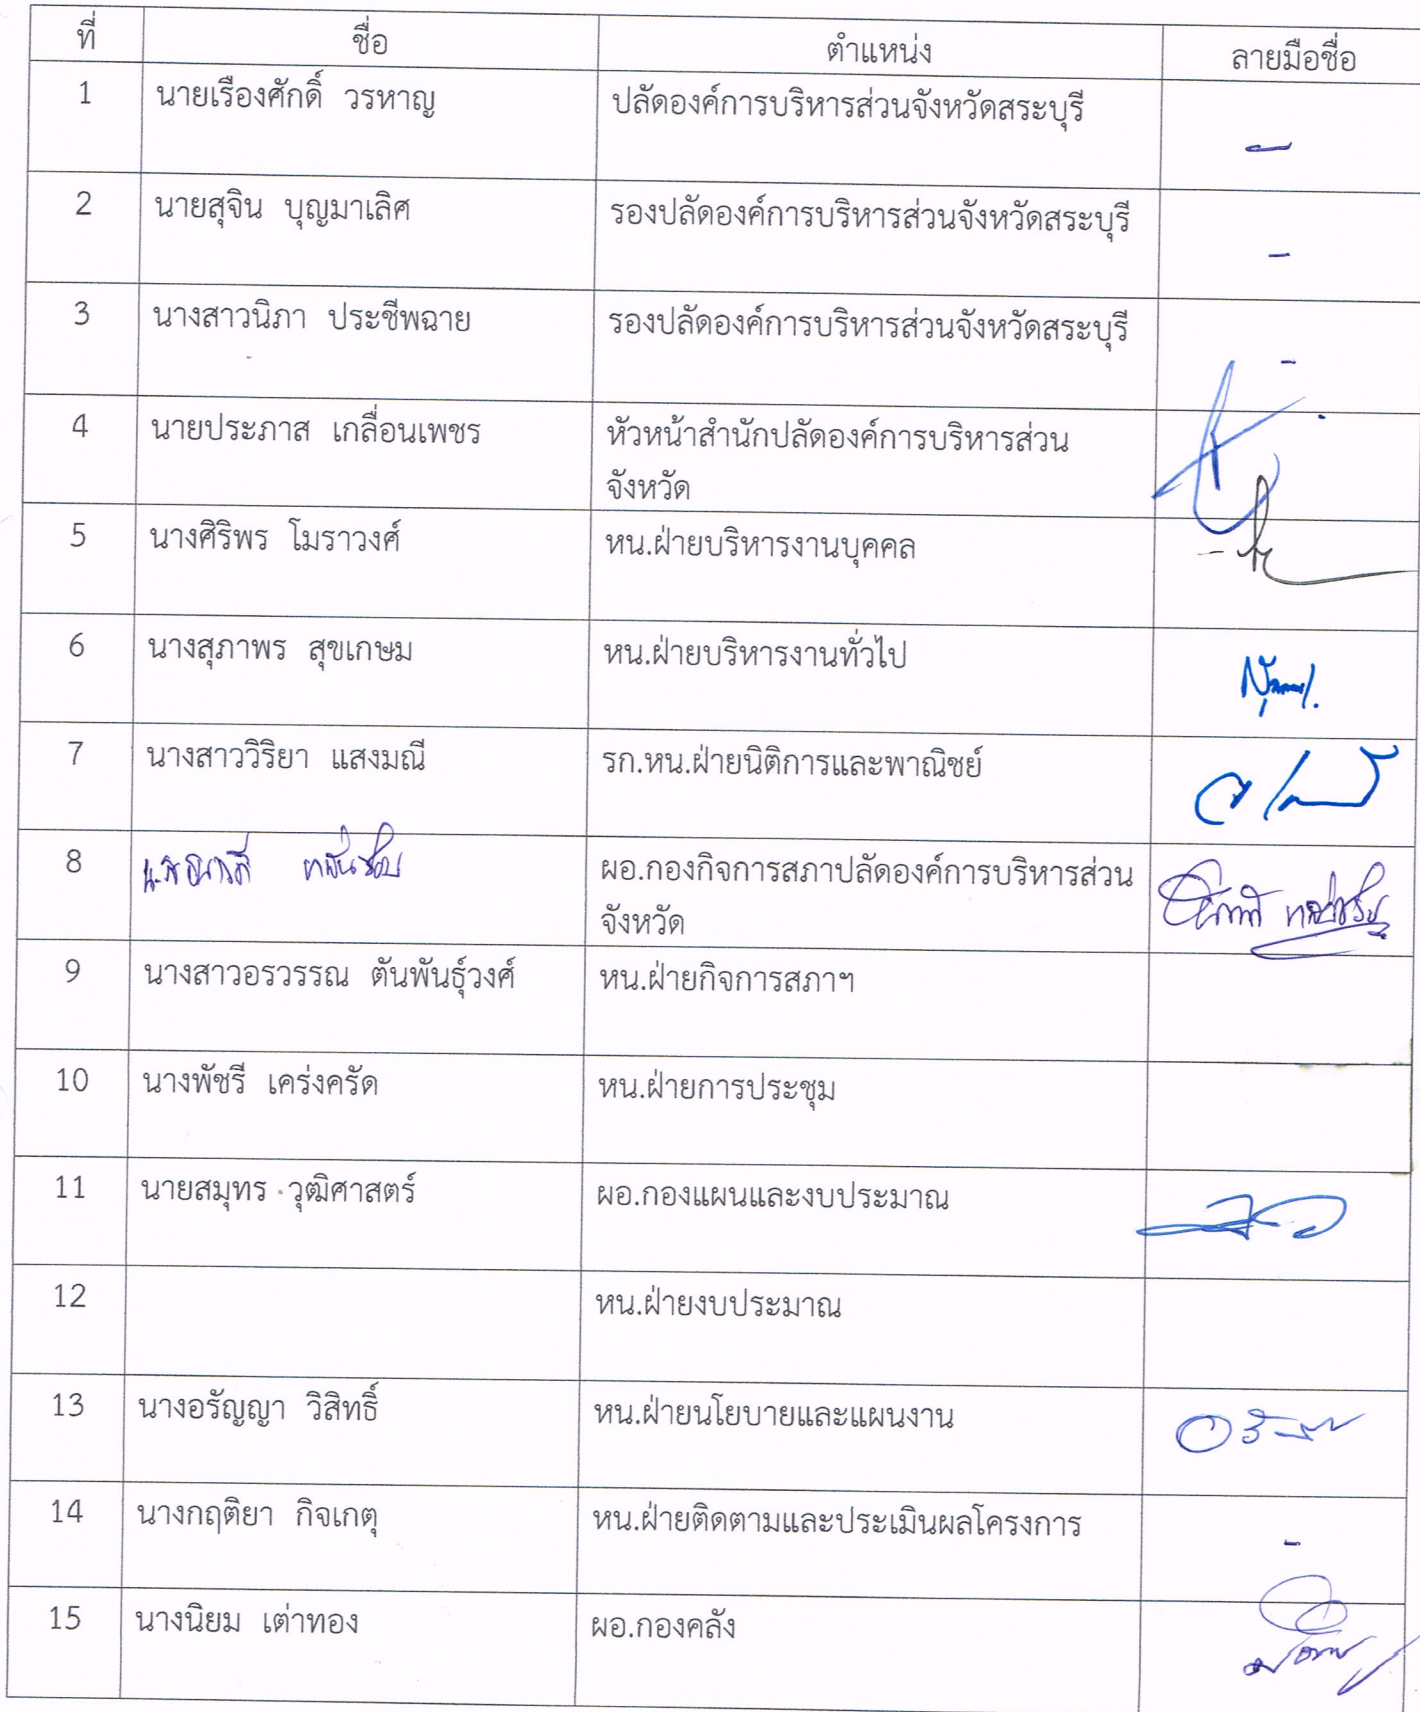 ที่ ชื่อ ตำแหน่ง ลายมือชื่อ
1 นายเรืองศักดิ์ วรหาญ ปลัดองค์การบริหารส่วนจังหวัดสระบุรี -
2 นายสุจิน บุญมาเลิศ รองปลัดองค์การบริหารส่วนจังหวัดสระบุรี -
3 นางสาวนิภา ประชีพฉาย รองปลัดองค์การบริหารส่วนจังหวัดสระบุรี -
4 นายประภาส เกลื่อนเพชร หัวหน้าสำนักปลัดองค์การบริหารส่วน
จังหวัด
5 นางศิริพร โมราวงศ์ หน.ฝ่ายบริหารงานบุคคล
6 นางสุภาพร สุขเกษม หน.ฝ่ายบริหารงานทั่วไป
7 นางสาววิริยา แสงมณี รก.หน.ฝ่ายนิติการและพาณิชย์
8 ผอ.กองกิจการสภาปลัดองค์การบริหารส่วน
จังหวัด
9 นางสาวอรวรรณ ตันพันธุ์วงศ์ หน.ฝ่ายกิจการสภาฯ
10 นางพัชรี เคร่งครัด หน.ฝ่ายการประชุม
11 นายสมุทร วุฒิศาสตร์ ผอ.กองแผนและงบประมาณ
12 หน.ฝ่ายงบประมาณ
13 นางอรัญญา วิสิทธิ์ หน.ฝ่ายนโยบายและแผนงาน
14 นางกฤติยา กิจเกตุ หน.ฝ่ายติดตามและประเมินผลโครงการ -
15 นางนิยม เต่าทอง ผอ.กองคลัง